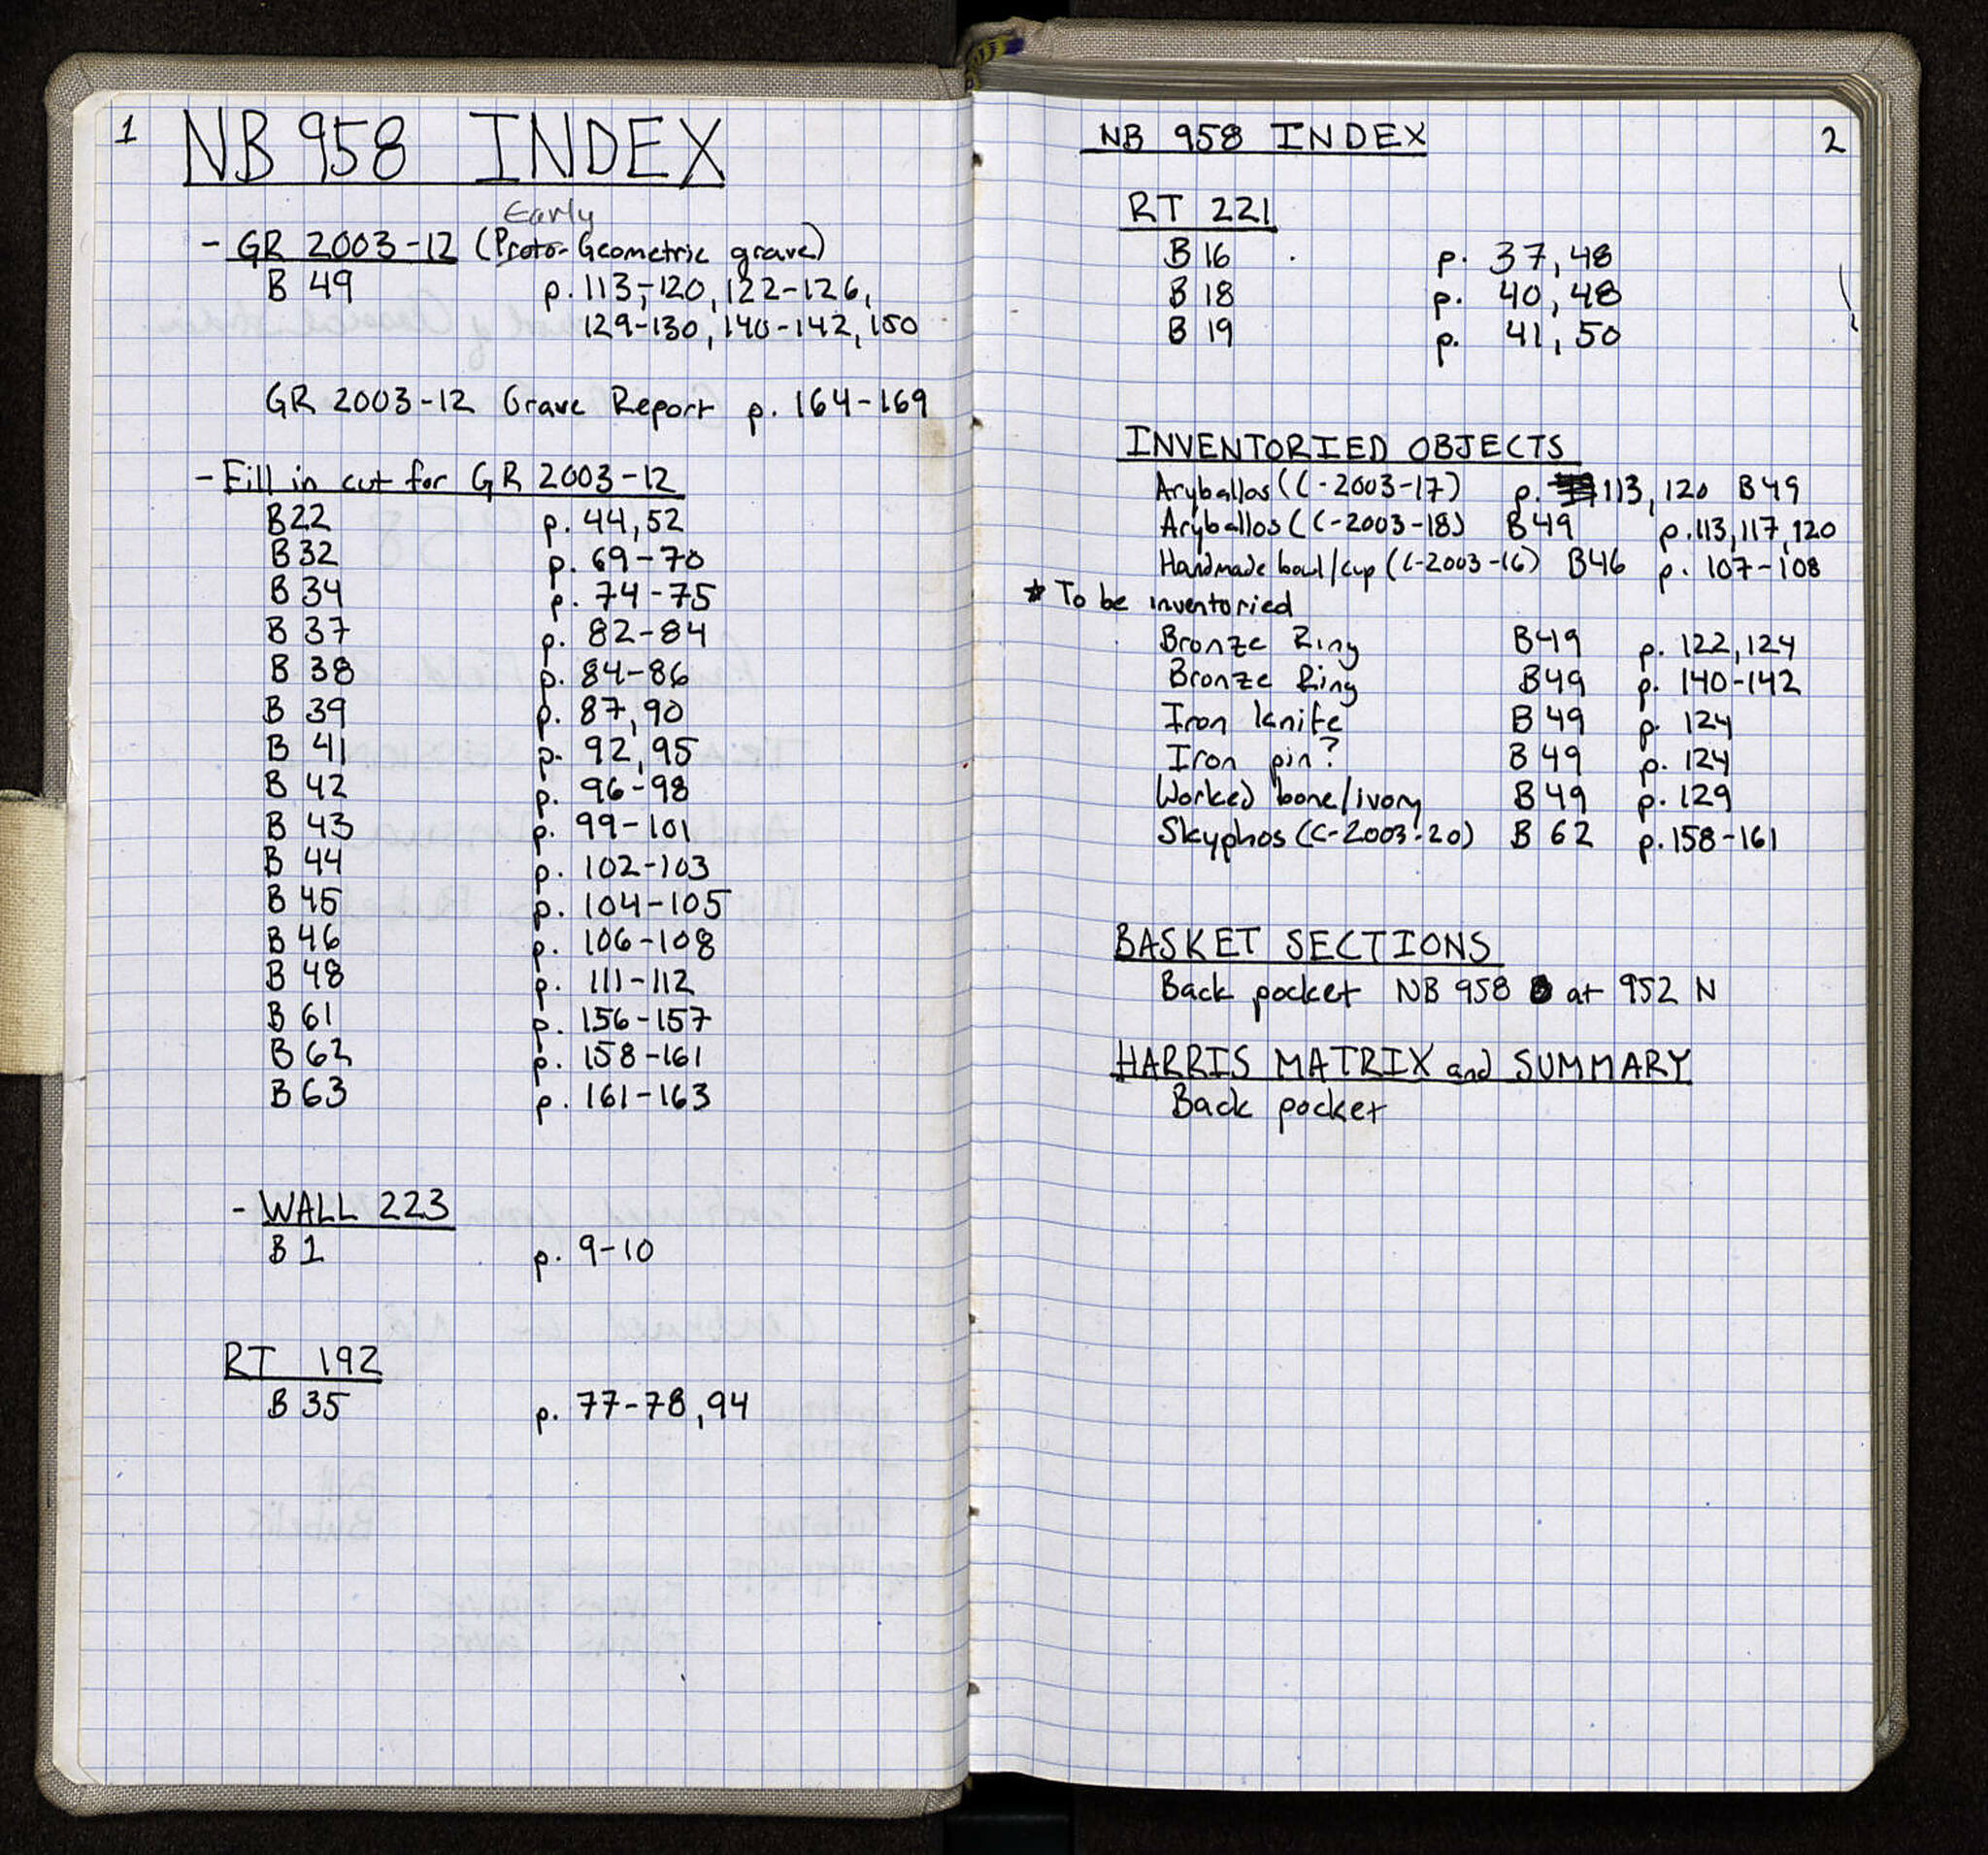 1
NB 958 INDEX
Early
- GR 2003-12 (Proto-Geometric grave)
B 49 p. 113-120, 122-126,
129-130, 140-142, 150
GR 2003-12 Grave Report p. 164-169
- Fill in cut for GR 2003-12
B22 p. 44,52
B32 p. 69-70
B 34 p. 74-75
B 37 p. 82-84
B 38 p. 84-86
B 39 p. 87,90
B 41 p. 92,95
B 42 p. 96-98
B 43 p. 99-101
B 44 p. 102-103
B 45 p. 104-105
B 46 p. 106-108
B 48 p. 111-112
B 61 p. 156-157
B 62 p. 158-161
B 63 p. 161-163
- WALL 223
B 1 p. 9-10
RT 192
B 35 p. 77-78, 94
NB 958 INDEX 2
RT 221
B 16 p. 37,48
B 18 p. 40,48
B 19 p. 41,50
INVENTORIED OBJECTS
Aryballos (C-2003-17) p. 113, 120 B49
Aryballos (C-2003-18) B49 p. 113, 117, 120
Handmade bowl/cup (C-2003-16) B46 p. 107-108
* To be inventoried
Bronze Ring B49 p. 122, 124
Bronze Ring B49 p. 140-142
Iron knife B 49 p. 124
Iron pin? B 49 p. 124
Worked bone/ivory B 49 p. 129
Skyphos (C-2003-20) B 62 p. 158-161
BASKET SECTIONS
Back pocket NB 958 at 952 N
HARRIS MATRIX and SUMMARY
Back pocket